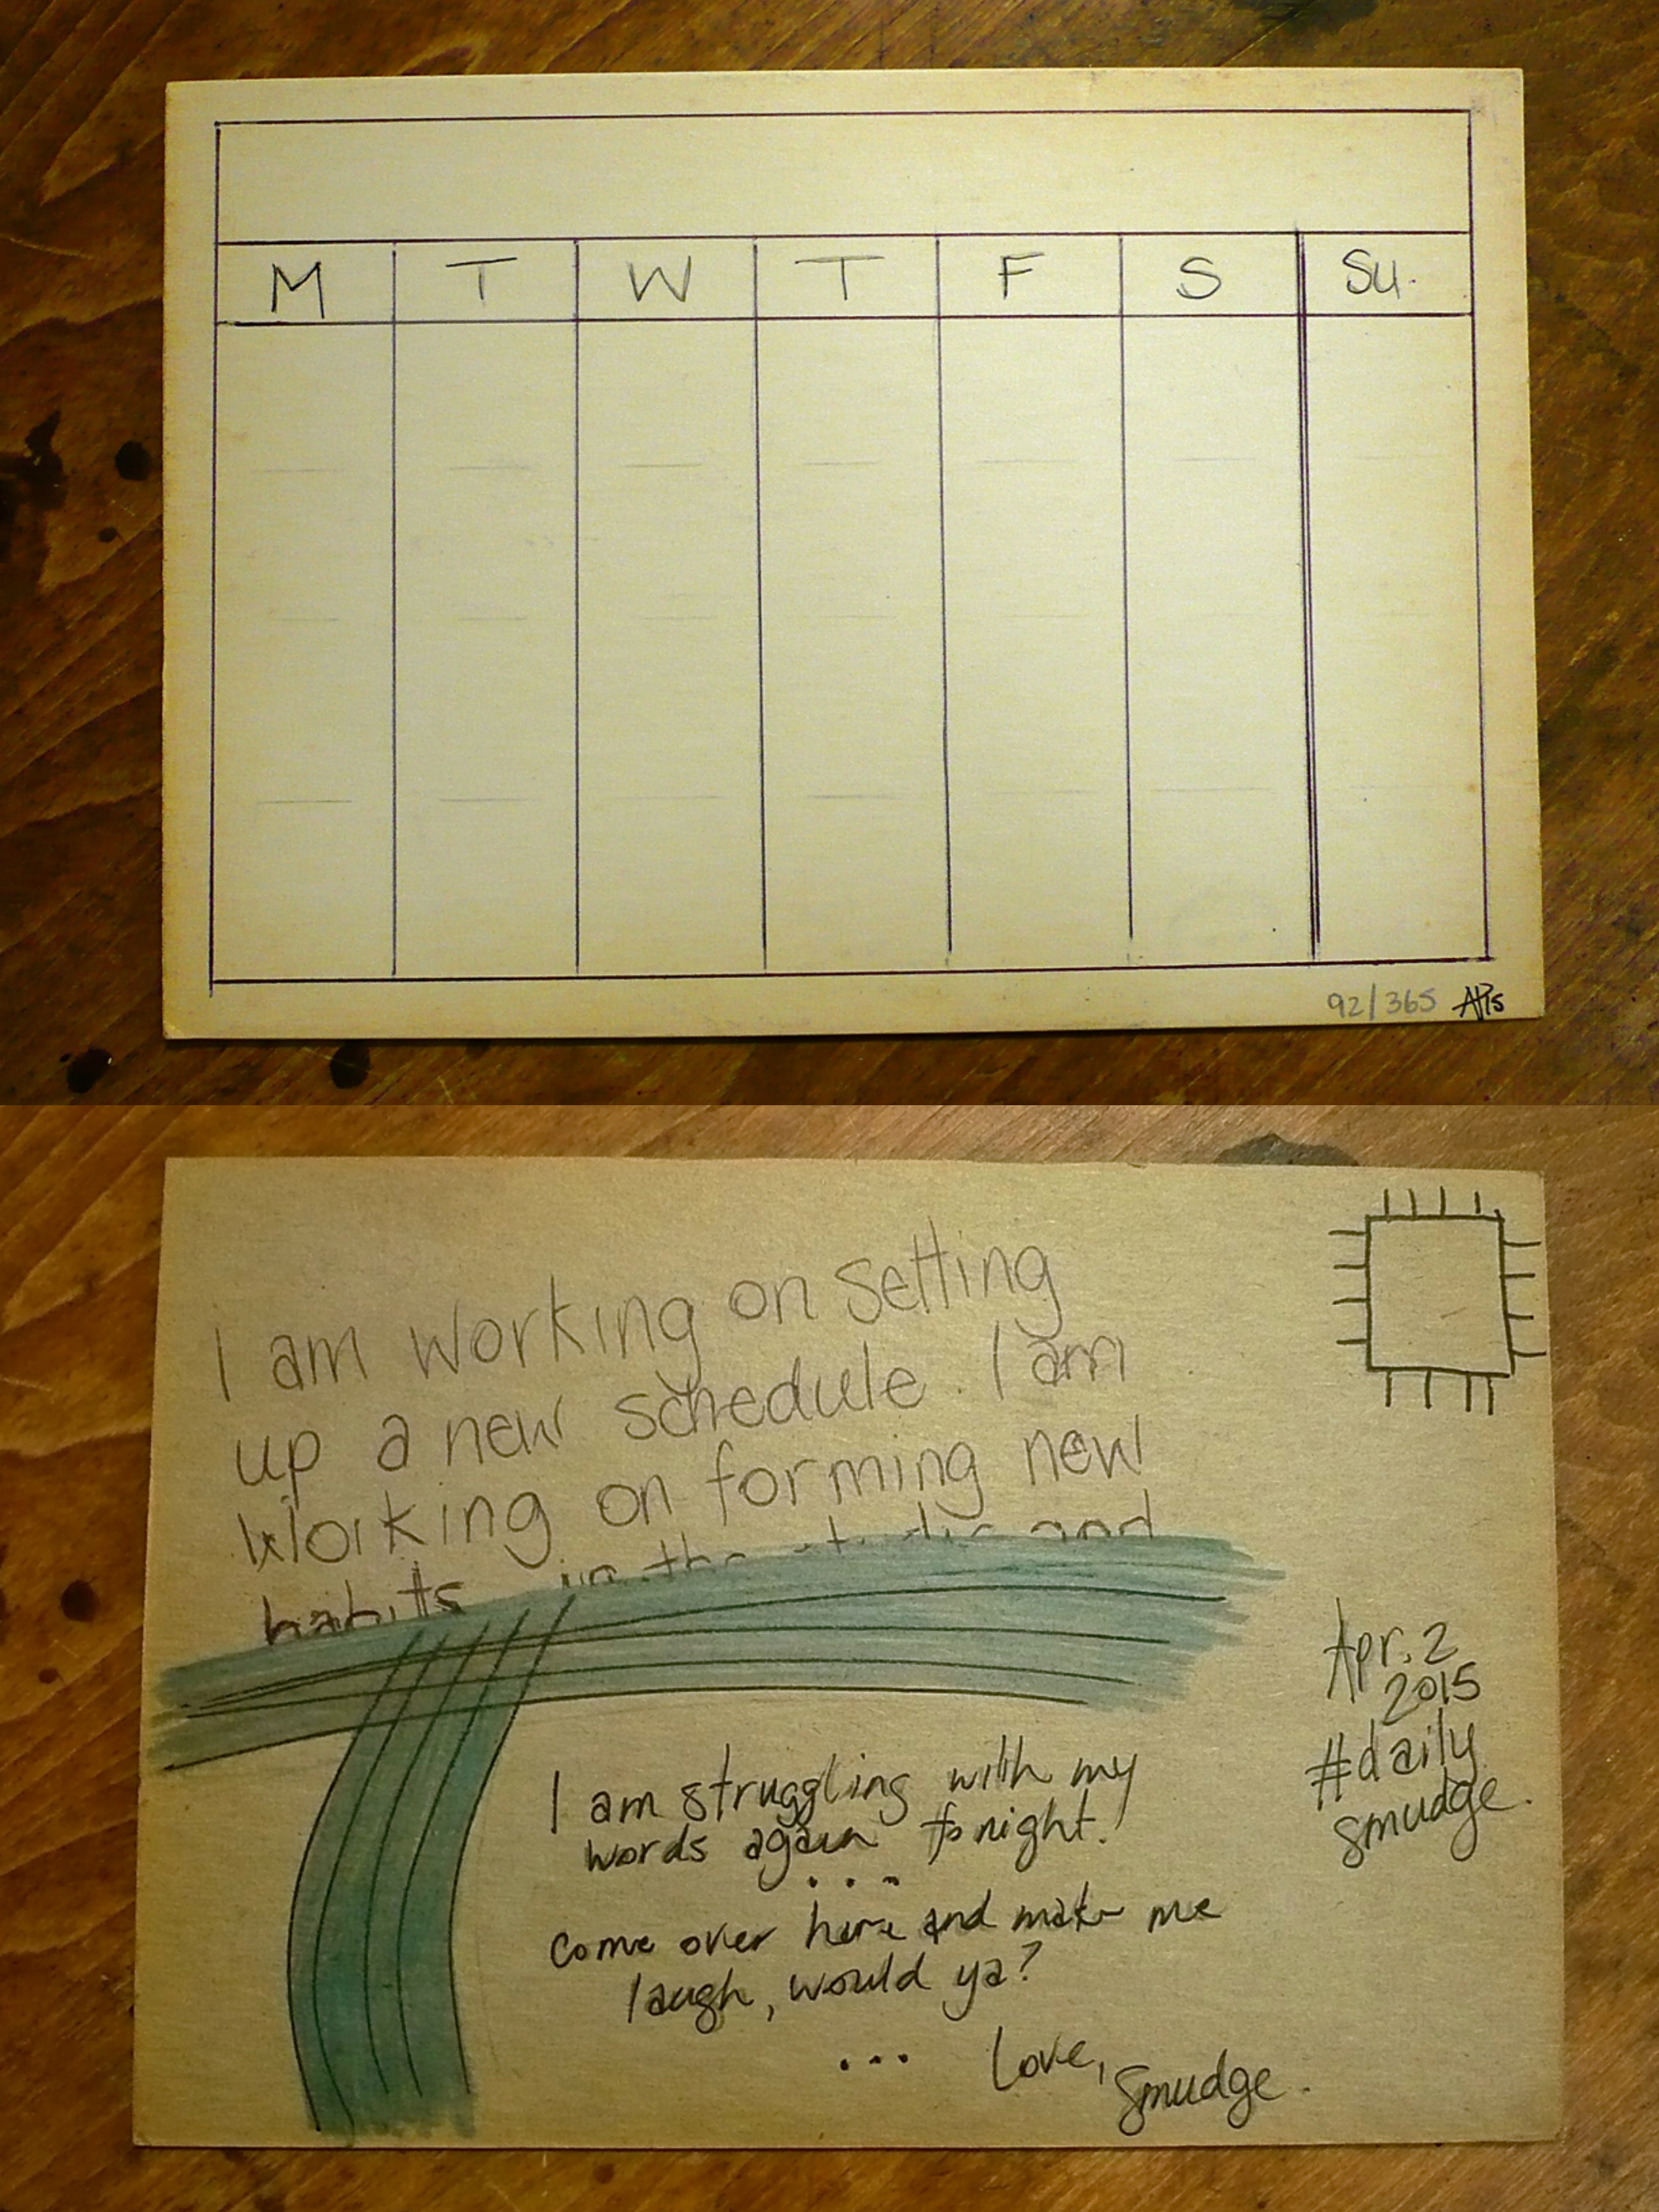 M T W T F S Su.
92/365
I am working on setting
up a new schedule. I am
working on forming new
habits in the studio and
Apr. 2
2015
#daily
smudge.
I am struggling with my
words again tonight.
...
come over here and make me
laugh, would ya?
... Love,
Smudge.